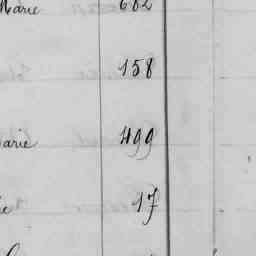 Marie 682
158
arie 499
ie 17